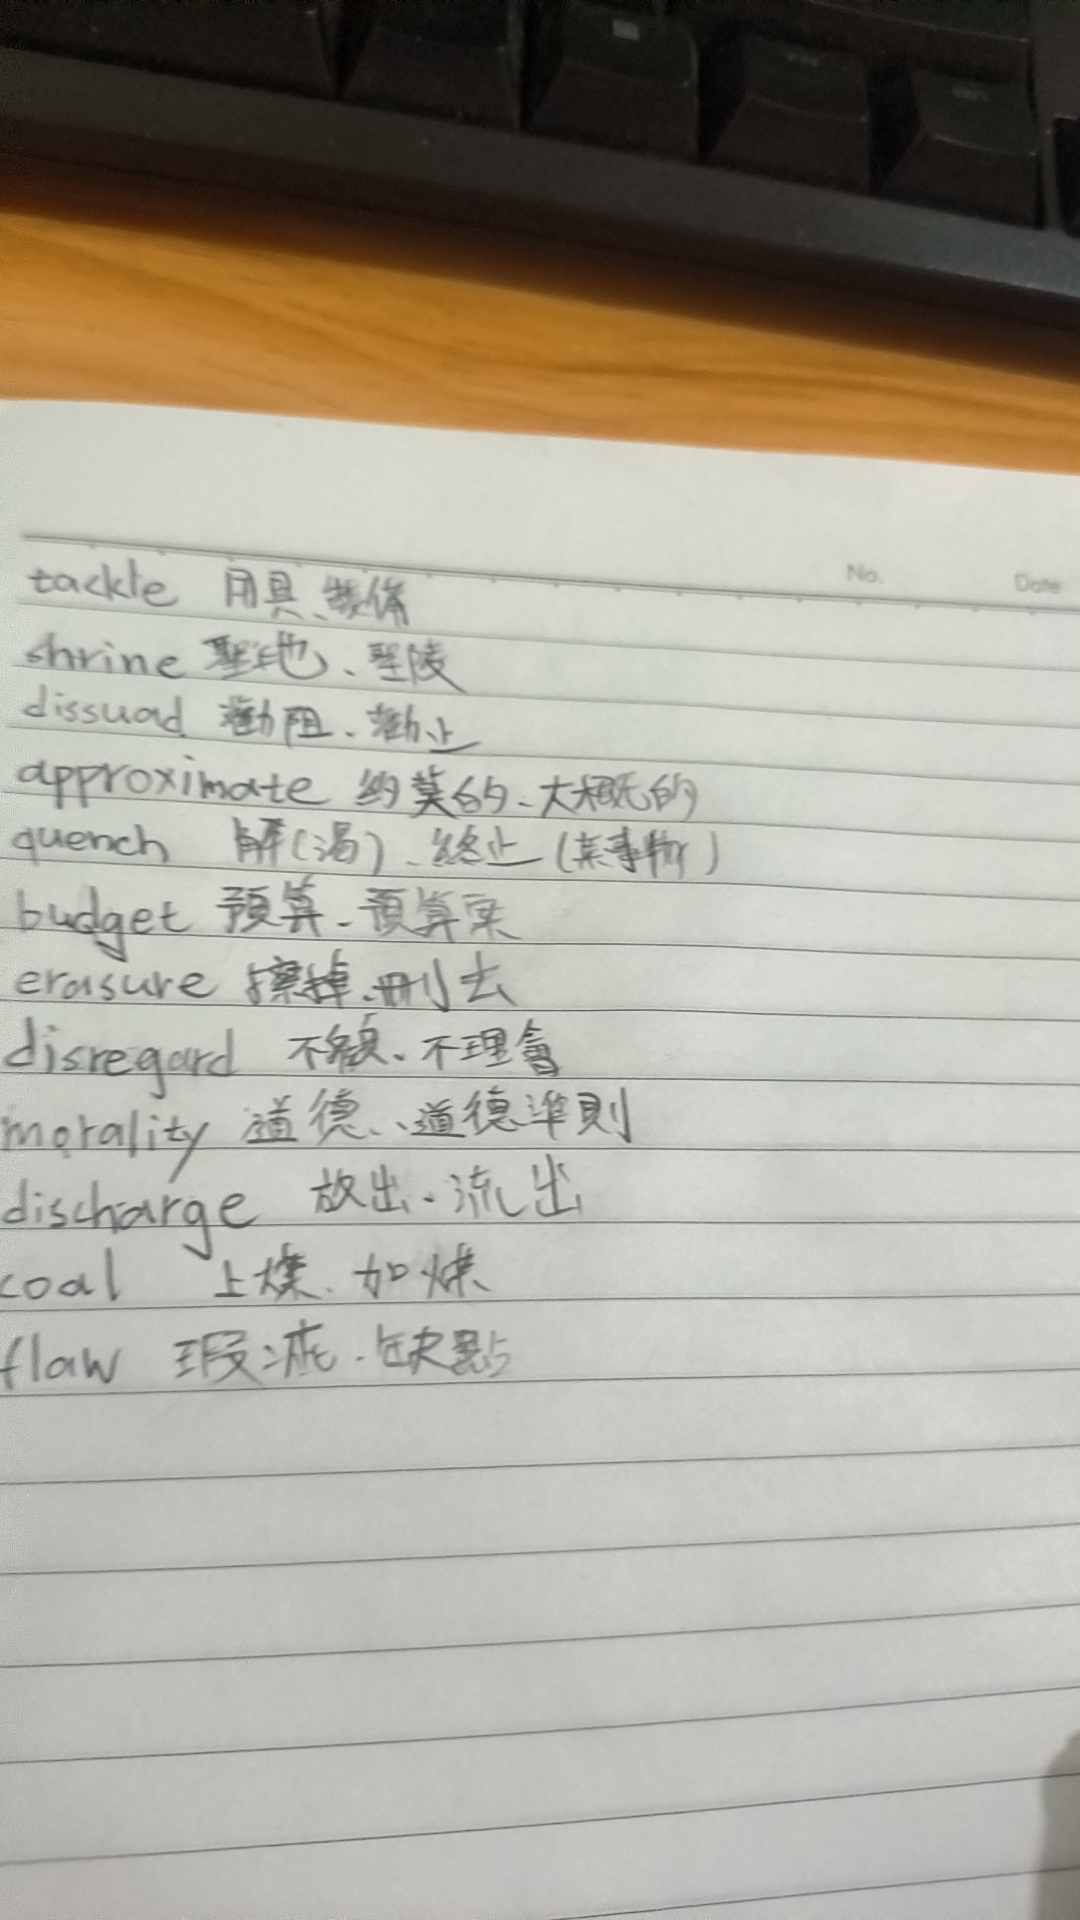 No. Date
tackle 用具、裝備
shrine 聖地、聖陵
dissuad 勸阻、勸止
approximate 約莫的、大概的
quench 解(渴)、終止(某事物)
budget 預算、預算案
erasure 擦掉、刪去
disregard 不顧、不理會
morality 道德、道德準則
discharge 放出、流出
coal 上煤、加煤
flaw 瑕疵、缺點